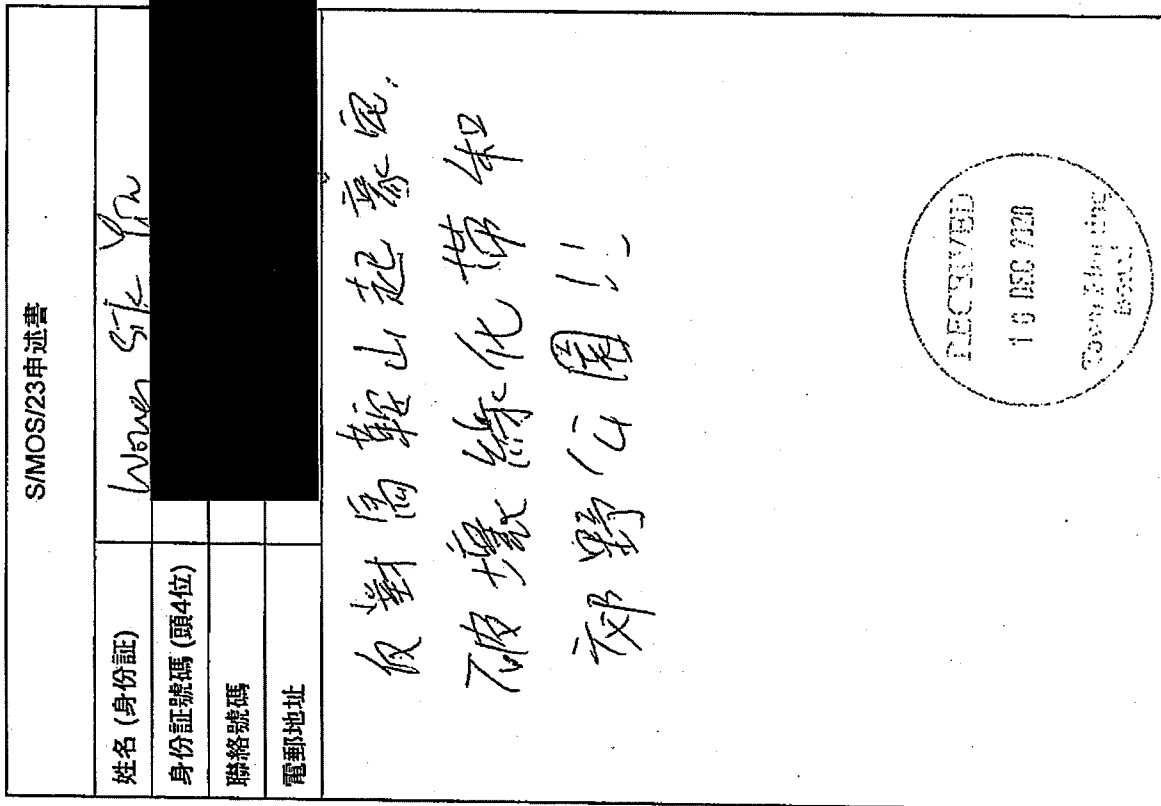 S/MOS/23申述書
姓名 (身份証)
Wong Sik Yin
身份証號碼 (頭4位)
聯絡號碼
電郵地址
反對馬鞍山起豪宅,
破壞綠化帶和
郊野公園!!
RECEIVED
16 DEC 2020
Town Planning
Board